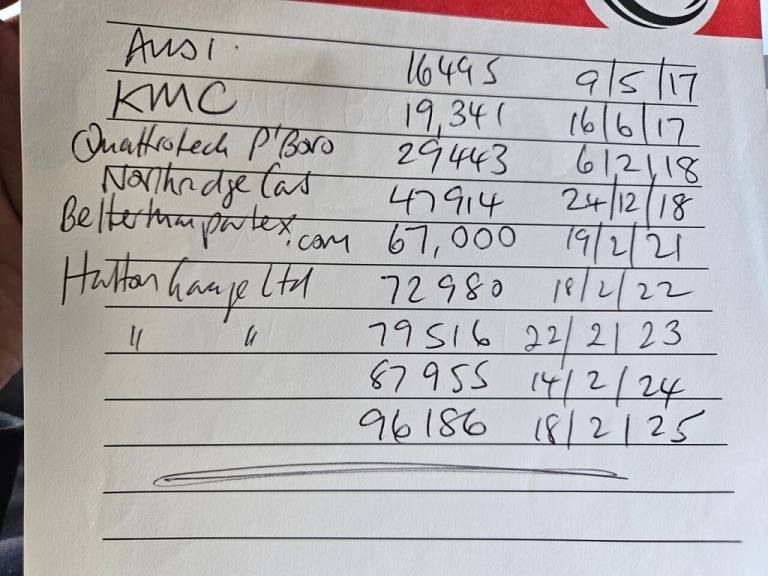 Audi. 16495 9/5/17
KMC 19,341 16/6/17
Quattrotech P'Boro 29443 6/2/18
Northridge Cars 47914 24/12/18
Betterthanpartex.com 67,000 19/2/21
Hatton Garage Ltd 72980 18/2/22
" " 79516 22/2/23
87955 14/2/24
96186 18/2/25